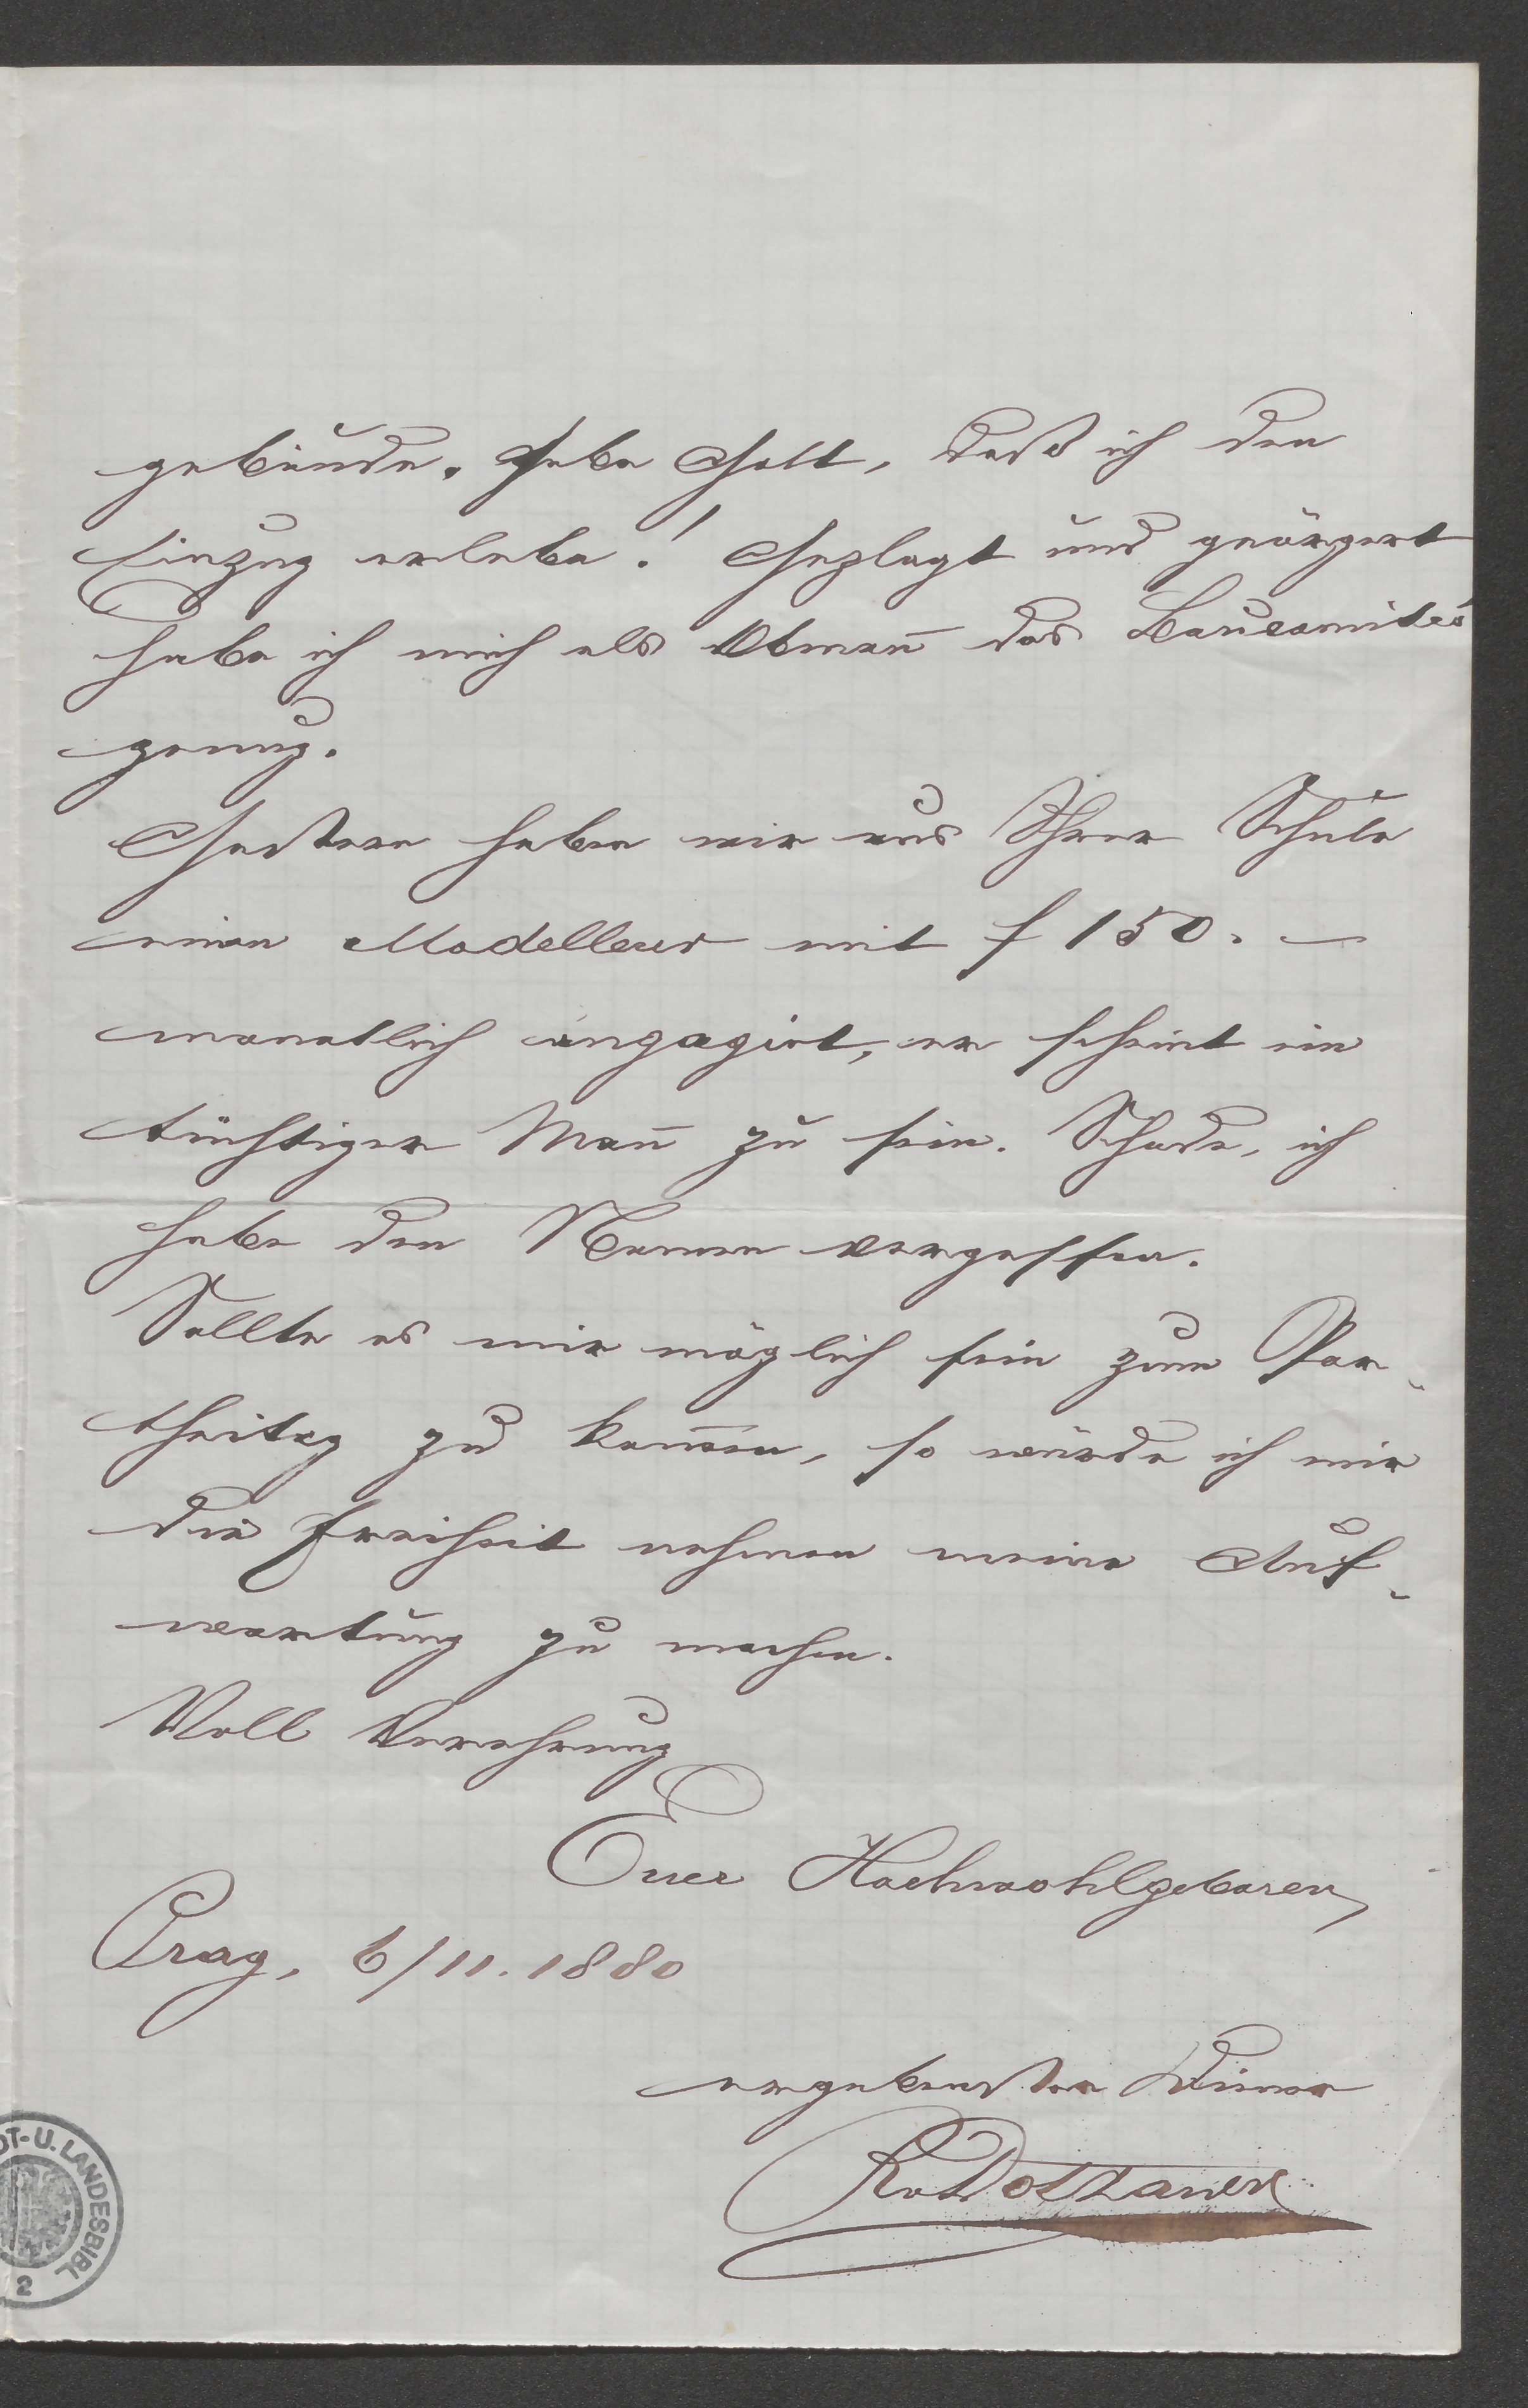 gebäude. Gebe Gott, daß ich den
Einzug erlebe! Geplagt und geärgert
habe ich mich als Obmañ des Baucomités
genug.
Gestern haben wir aus Ihrer Schule
einen Modelleur mit f 150.—
monatlich engagirt, er scheint ein
tüchtiger Mañ zu sein. Schade, ich
habe den Namen vergessen.
Sollte es mir möglich sein zum Par-
theitag zu kom̄en, so würde ich mir
die Freiheit nehmen meine Auf-
wartung zu machen.
Voll Verehrung
Euer Hochwohlgeboren
Prag, 6/11.1880
ergebenster Diener
RDotzauer
DT-U. LANDESBIBL
2